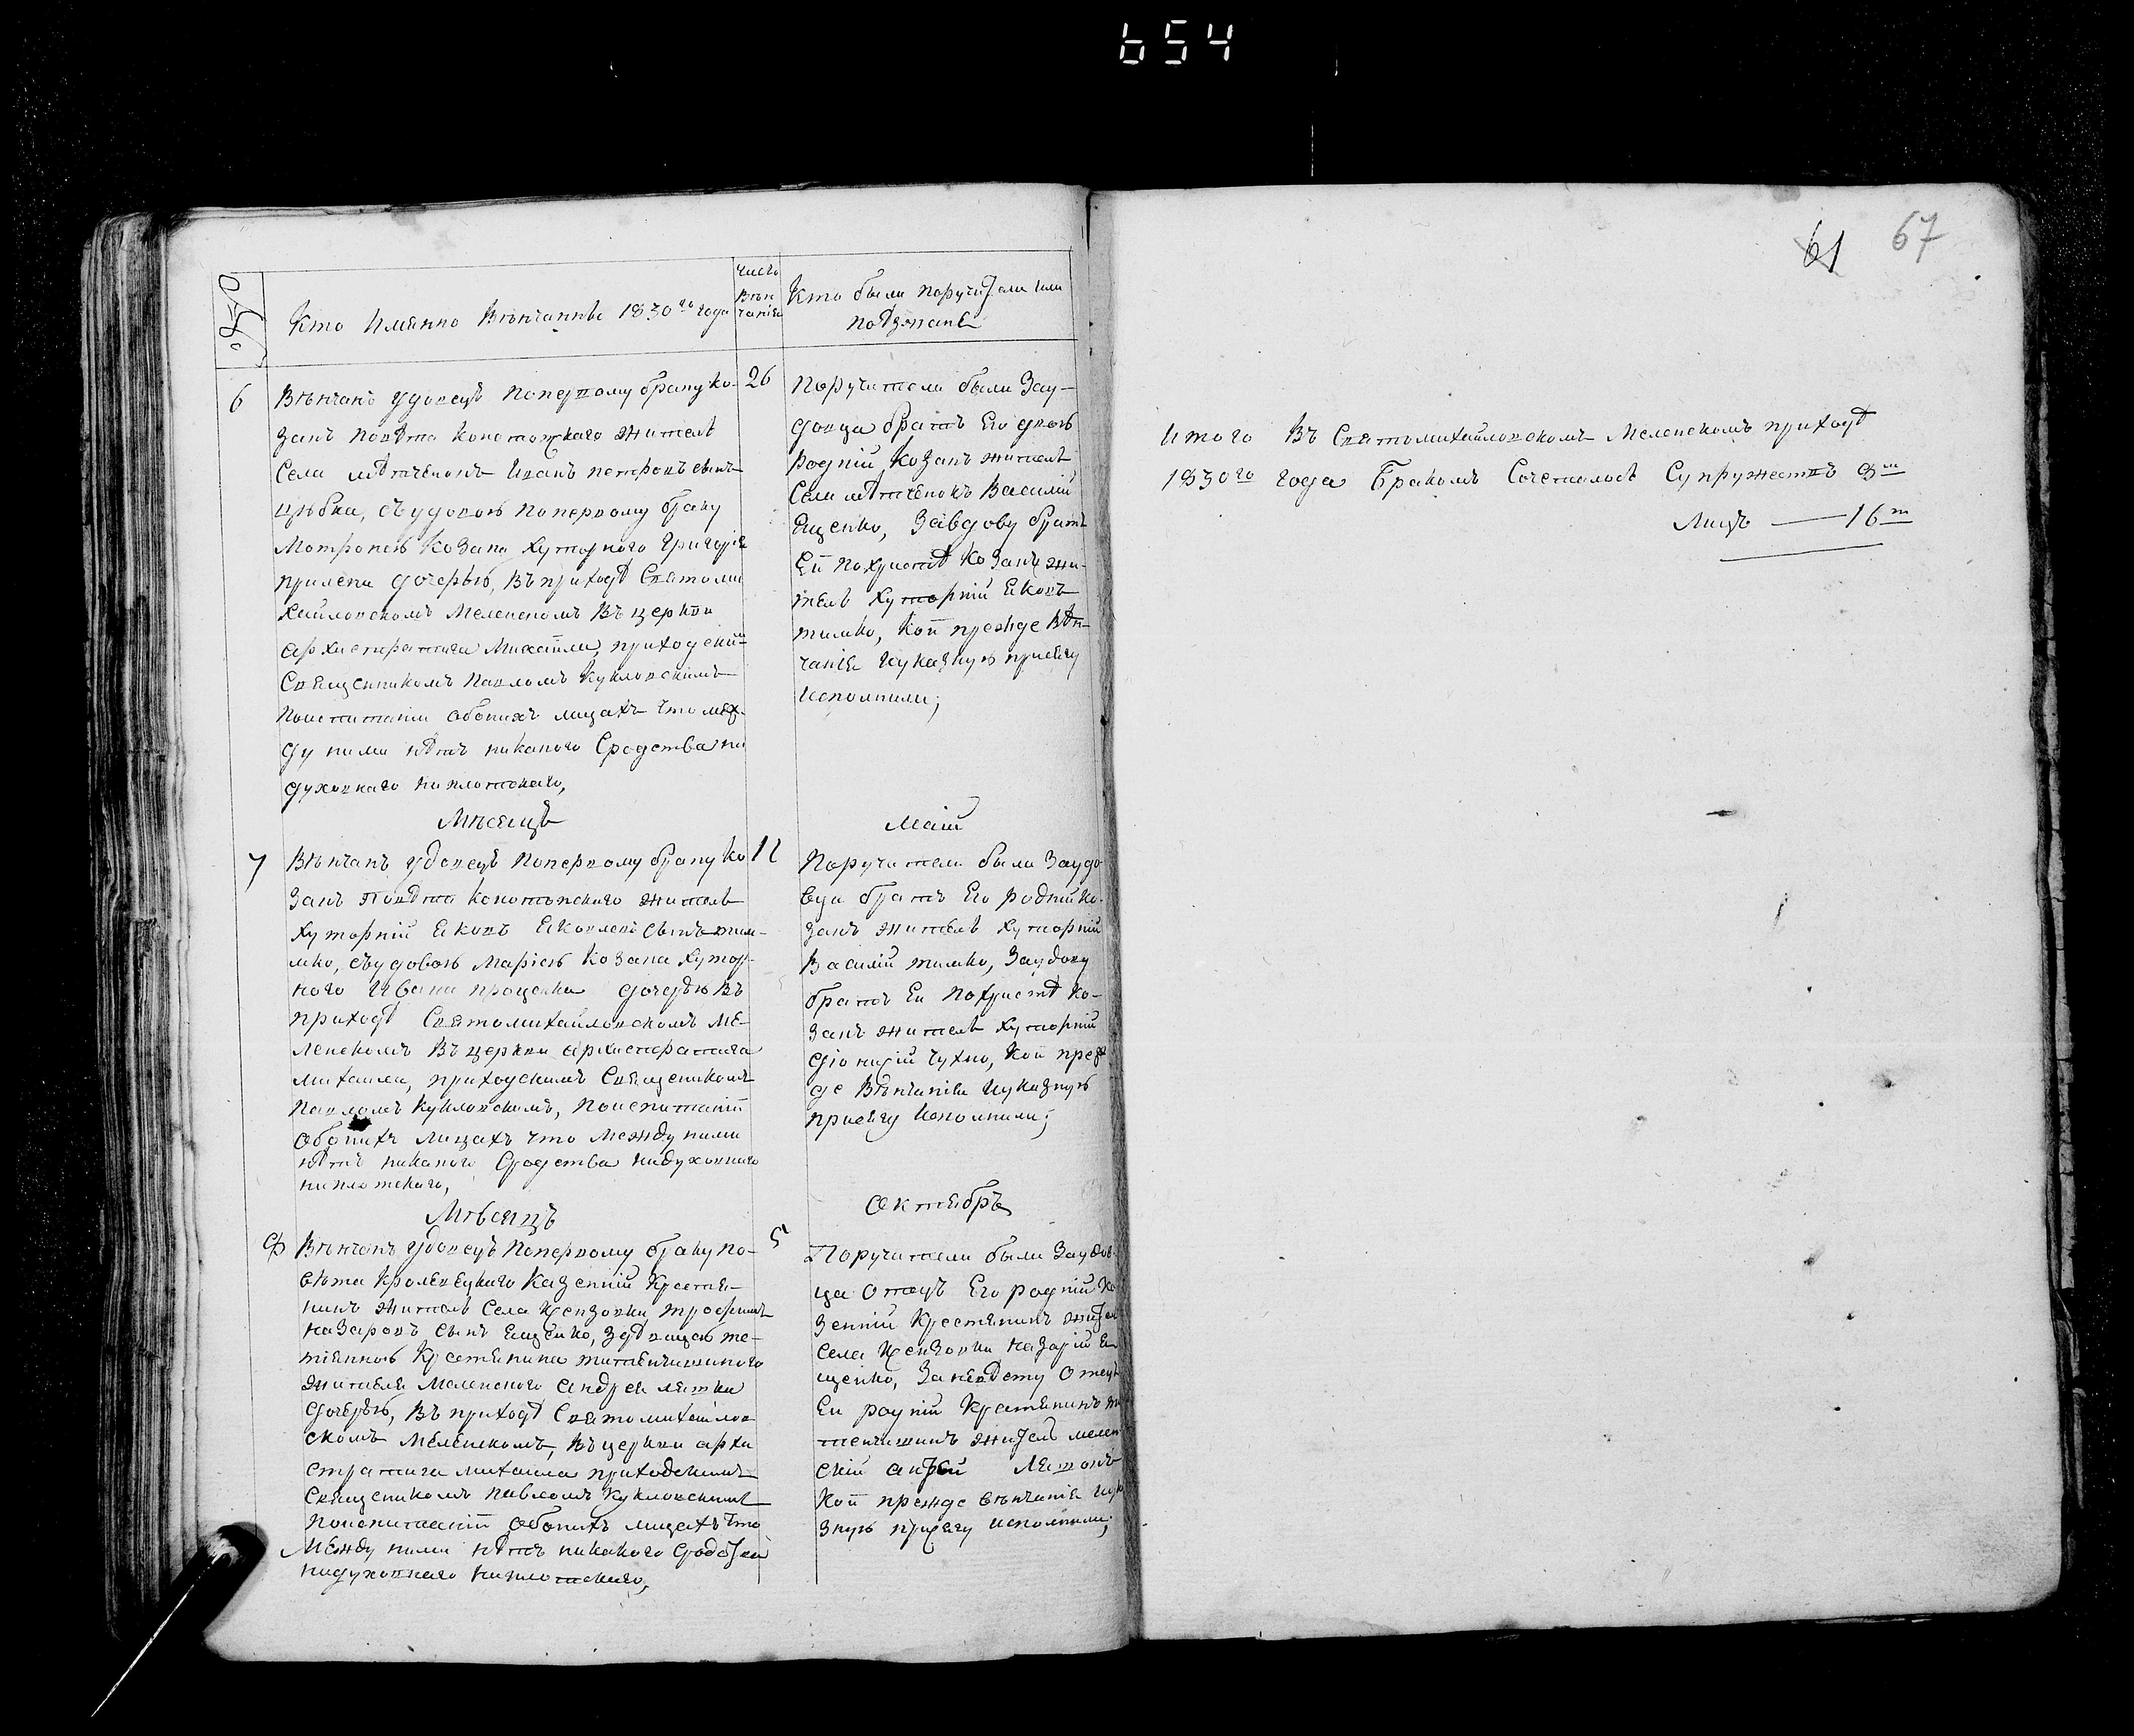 654
61 67
№
Кто Имянно Вѣнчаннъ 1830го года
число Вѣн чанія
Кто были поручители или
подзнаніе
6
Вѣнчанъ удовецъ поперъвому браку Ко-
закъ повѣта Конотопского житель
Села Иванъ петровъ сынъ
съ удовою поперъвому браку
Мотроною Козака Хуторного Григорія
дочерью, въ приходѣ Святоми
хайловскомъ Меленскомъ въ церкви
архистратига Михаила, приходским
Священникомъ Павломъ Кукловскимъ
поиспитаніи обоихъ лицахъ что меж-
ду ними нѣтъ никакого Сродства ни
духовнаго ниплотскаго,
26
Поручители были Зау-
довца братъ Его двою
родній Козакъ житель
Села Василій
Ещенко, Завдову братъ
Ей Козакъ жи-
тель Хуторній Яковъ
тимко, Кои прежде вѣн-
чанія Иуказную присягу
Исполнили;
Мѣсяцъ
Маій
7
Вѣнчанъ удовецъ поперъвому браку Ко
закъ Повѣта Конотопского житель
Хуторній Яковъ Яковлевъ сынъ тим-
ко, съудовою Маріею Козака Хутор-
ного Ивана проценка дочерью въ
приходѣ Святомихайловскомъ Ме-
ленскомъ въ церкви архистратига
михаила, приходскимъ Священикомъ
Павломъ Кукловскимъ, поиспитаніи
обоихъ лицахъ что между ними
нѣтъ никакого Сродства нидуховнаго
ниплотского,
Поручители были Заудо
вца братъ Его родній ко-
закъ житель Хуторній
Василій тимко, Заудову
братъ Ея ко-
закъ житель Хуторній
Кои преж
де Вѣнчанія Иуказную
присягу Исполнили;
Мѣсяцъ
Октябръ
Вѣнчанъ удовецъ поперъвому браку по-
вѣта Кролевецкого Казенній Крестя-
нинъ житель Села трофимъ
назаровъ сынъ Ещенко, здѣвицею
Крестянина
жителя Меленского андрея ляшка
дочерью, въ приходѣ Святомихайлов
скомъ Меленскомъ, въ церкви архи
стратига михаила приходскимъ
Священикомъ павломъ Кукловскимъ
поиспитаніи обоихъ лицахъ что
Между ними нѣтъ никакого Сродства
нидуховнаго ниплотского,
5
Поручители были Заудов
ца отецъ Его родній Ка
зенній Крестянинъ житель
Села назарій Е
щенко, Заневѣсту отецъ
Ея родній Крестянинъ
житель мелен
скій андрей Ляшокъ
Кои прежде вѣнчанія Иука
зную присягу исполнили;
Итого Въ Святомихайловскомъ Меленскомъ приходѣ
1830го года Бракомъ Сочеталось Супружествъ 8м
Лицъ — 16т